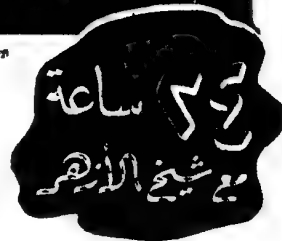 ٢٤ ساعة
مع شيخ الأزهر